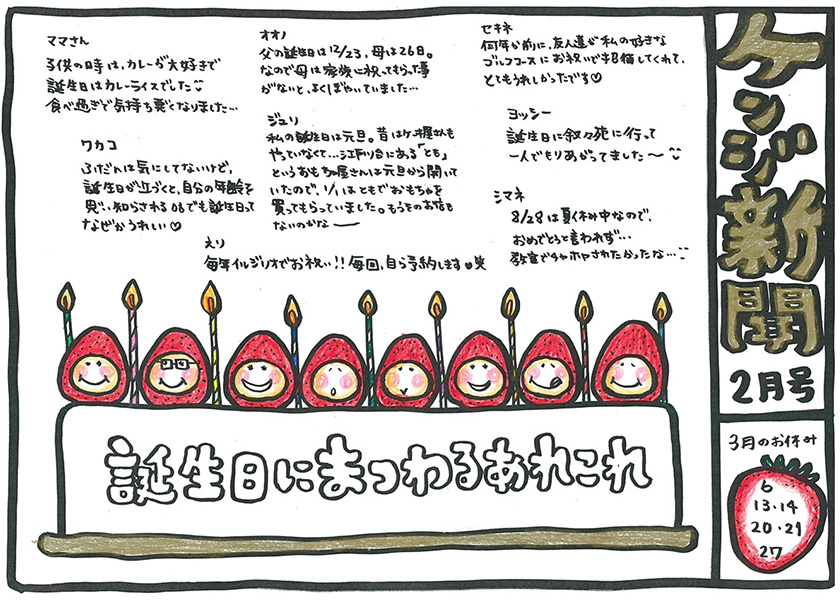 ケンジ新聞
2月号
3月のお休み
6
13・14
20・21
27
セキネ
何年か前に、友人達が私の好きな
ゴルフコースにお祝いで招待してくれて、
とてもうれしかったです♡
ヨッシー
誕生日に叙々苑に行って
一人でもりあがってました〜
シマネ
8/28は夏休み中なので、
おめでとうと言われず…
教室でチヤホヤされたかったな…
オオノ
父の誕生日は12/23、母は26日。
なので母は家族に祝ってもらった事
がないと、よくぼやいていました…
ジュリ
私の誕生日は元旦。昔はケーキ屋さんも
やっていなくて…江戸川台にある「とも」
というおもちゃ屋さんは元旦から開いて
いたので、1/1はともでおもちゃを
買ってもらっていました。もうそのお店も
ないのかな〜
ママさん
子供の時は、カレーが大好きで
誕生日はカレーライスでした
食べ過ぎで気持ち悪くなりました…
ワカコ
ふだんは気にしてないけど、
誕生日が近づくと、自分の年齢を
思い知らされる でも誕生日って
なぜかうれしい♡
えり
毎年イルジリオでお祝い!!毎回、自ら予約します 笑
誕生日にまつわるあれこれ